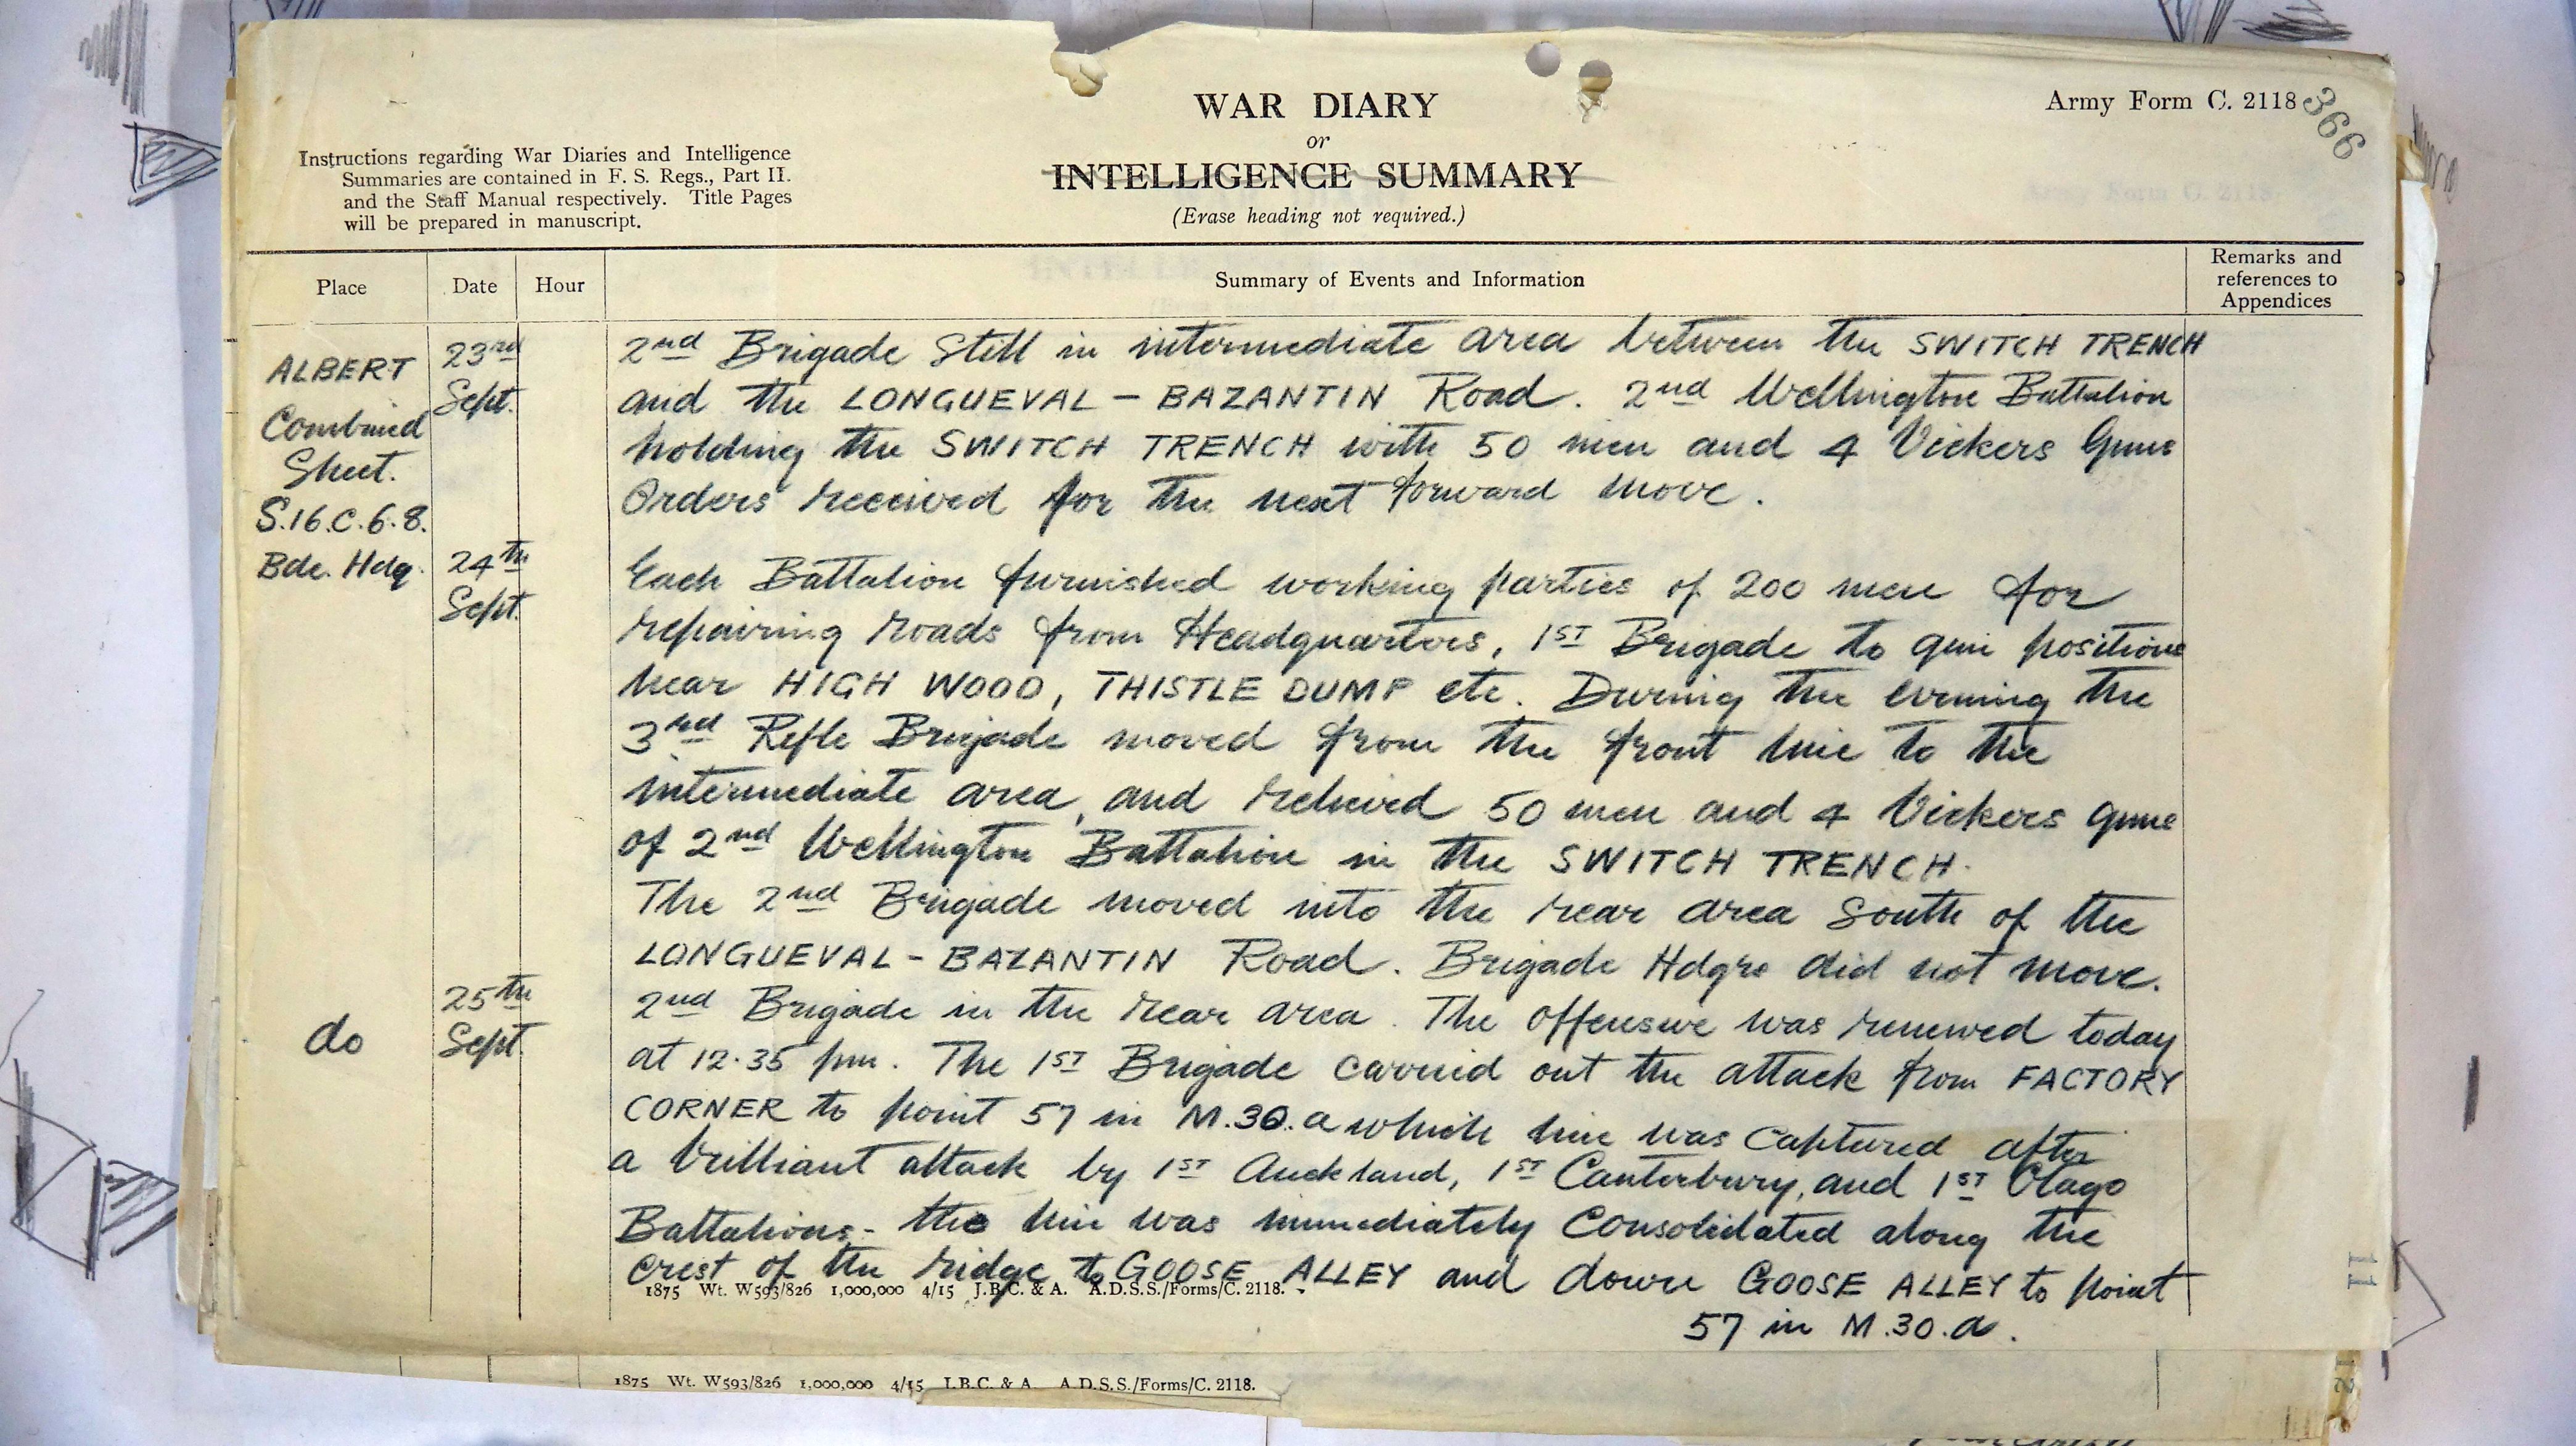 WAR DIARY
or
INTELLIGENCE SUMMARY
(Erase heading not required.)
Army Form C. 2118
366
Instructions regarding War Diaries and Intelligence
Summaries are contained in F. S. Regs., Part II.
and the Staff Manual respectively. Title Pages
will be prepared in manuscript.
Place
Date
Hour
Summary of Events and Information
Remarks and
references to
Appendices
ALBERT
Combined
Sheet.
S.16.C.6.8.
Bde. Hdq.
23rd
Sept.
2nd Brigade still in intermediate area between the SWITCH TRENCH
and the LONGUEVAL - BAZANTIN Road. 2nd Wellington Battalion
holding the SWITCH TRENCH with 50 men and 4 Vickers Guns
Orders received for the next forward move.
24th
Sept.
Each Battalion furnished working parties of 200 men for
repairing roads from Headquarters, 1ST Brigade to gun positions
near HIGH WOOD, THISTLE DUMP etc. During the evening the
3rd Rifle Brigade moved from the front line to the
intermediate area, and relieved 50 men and 4 Vickers guns
of 2nd Wellington Battalion in the SWITCH TRENCH.
The 2nd Brigade moved into the rear area South of the
LONGUEVAL - BAZANTIN Road. Brigade Hdqrs did not move.
do
25th
Sept.
2nd Brigade in the rear area. The offensive was renewed today
at 12.35 pm. The 1ST Brigade carried out the attack from FACTORY
CORNER to point 57 in M.30.a which line was captured after
a brilliant attack by 1ST Auckland, 1ST Canterbury, and 1ST Otago
Battalions - the line was immediately consolidated along the
crest of the ridge to GOOSE ALLEY and down GOOSE ALLEY to point
57 in M.30.a.
1875 Wt. W593/826 1,000,000 4/15 J.B.C. & A. A.D.S.S./Forms/C. 2118.
11
1875 Wt. W593/826 1,000,000 4/15 J.B.C. & A. A.D.S.S./Forms/C. 2118.
12